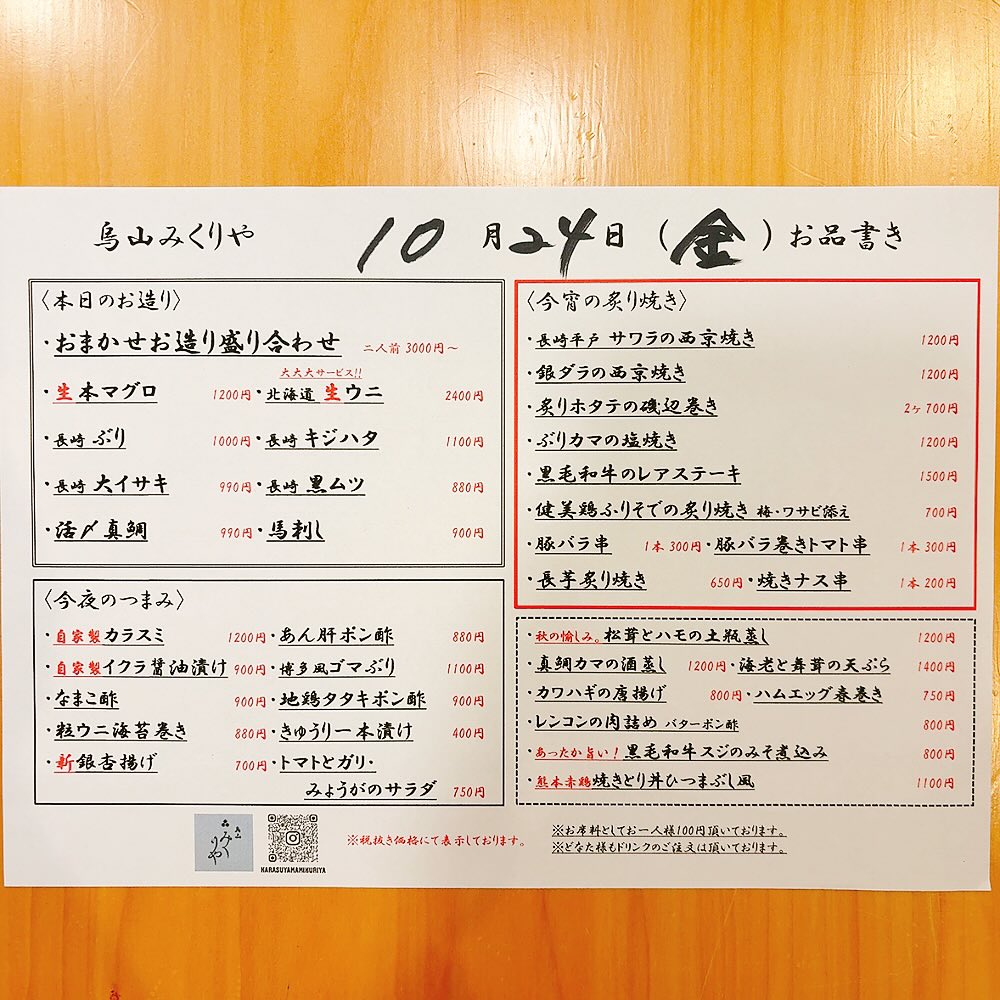 烏山みくりや 10月24日(金)お品書き
〈本日のお造り〉
・おまかせお造り盛り合わせ 二人前 3000円～
大大大サービス!!
・生本マグロ 1200円・北海道 生ウニ 2400円
・長崎 ぶり 1000円・長崎 キジハタ 1100円
・長崎 大イサキ 990円・長崎 黒ムツ 880円
・活〆真鯛 990円・馬刺し 900円
〈今夜のつまみ〉
・自家製カラスミ 1200円・あん肝ポン酢 880円
・自家製イクラ醤油漬け 900円・博多風ゴマぶり 1100円
・なまこ酢 900円・地鶏タタキポン酢 900円
・粒ウニ海苔巻き 880円・きゅうり一本漬け 400円
・新銀杏揚げ 700円・トマトとガリ・
みょうがのサラダ 750円
〈今宵の炙り焼き〉
・長崎平戸 サワラの西京焼き 1200円
・銀ダラの西京焼き 1200円
・炙りホタテの磯辺巻き 2ヶ 700円
・ぶりカマの塩焼き 1200円
・黒毛和牛のレアステーキ 1500円
・健美鶏ふりそでの炙り焼き 梅・ワサビ添え 700円
・豚バラ串 1本 300円・豚バラ巻きトマト串 1本 300円
・長芋炙り焼き 650円・焼きナス串 1本 200円
・秋の愉しみ。松茸とハモの土瓶蒸し 1200円
・真鯛カマの酒蒸し 1200円・海老と舞茸の天ぷら 1400円
・カワハギの唐揚げ 800円・ハムエッグ春巻き 750円
・レンコンの肉詰め バターポン酢 800円
・あったか旨い！黒毛和牛スジのみそ煮込み 800円
・熊本赤鶏焼きとり丼ひつまぶし風 1100円
烏山
みくりや
KARASUYAMAMIKURIYA
※税抜き価格にて表示しております。
※お席料としてお一人様100円頂いております。
※どなた様もドリンクのご注文は頂いております。